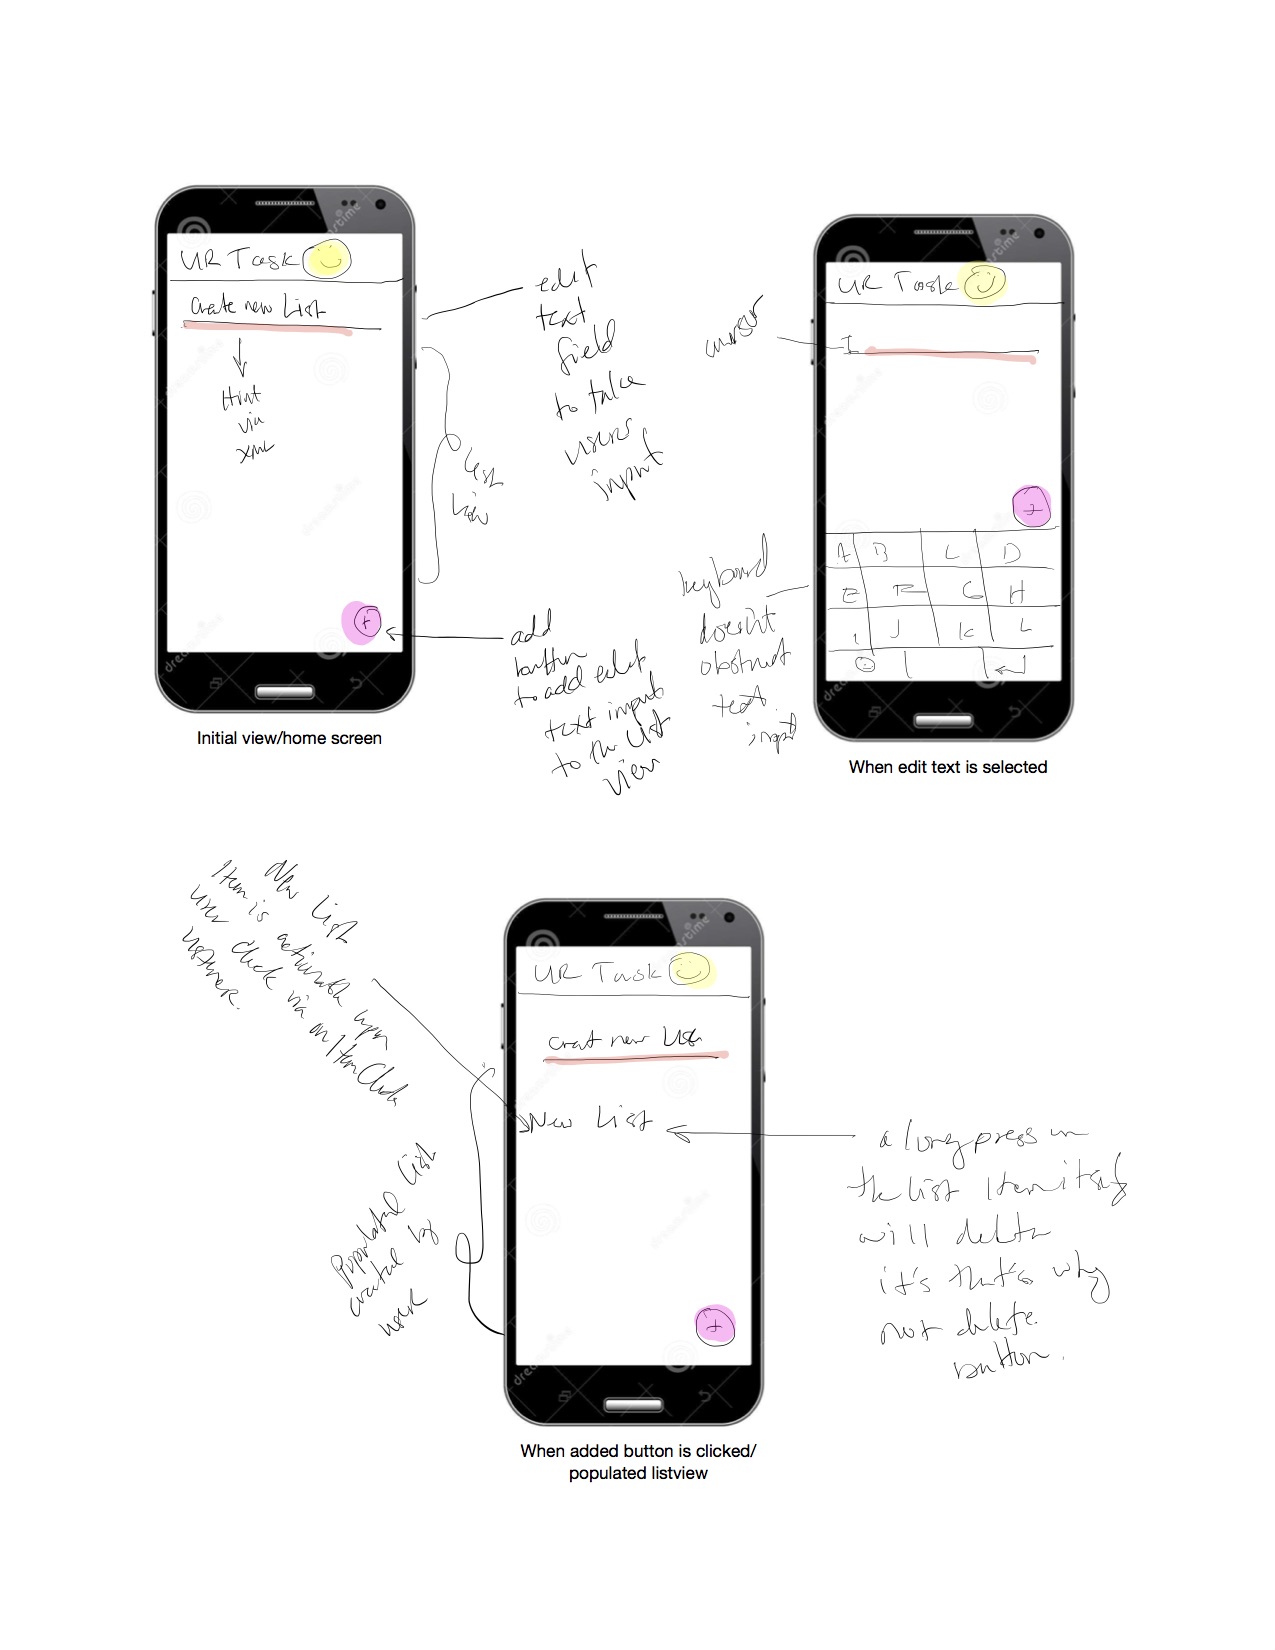 UR Task
Create new List
Hint
via
xml
edit
text
field
to take
users
input
List
View
add
button
to add edit
text input
to the list
view
Initial view/home screen
UR Task
cursor
I
+
A B C D
E F G H
I J K L
keyboard
doesn't
obstruct
text
input
When edit text is selected
New List
Item is
user click via onItemClick
listener.
UR Task
Creat new List
New List
+
Populated list
created by
user
a long press on
the list Item itself
will delete
it's that's why
not delete
button.
When added button is clicked/
populated listview